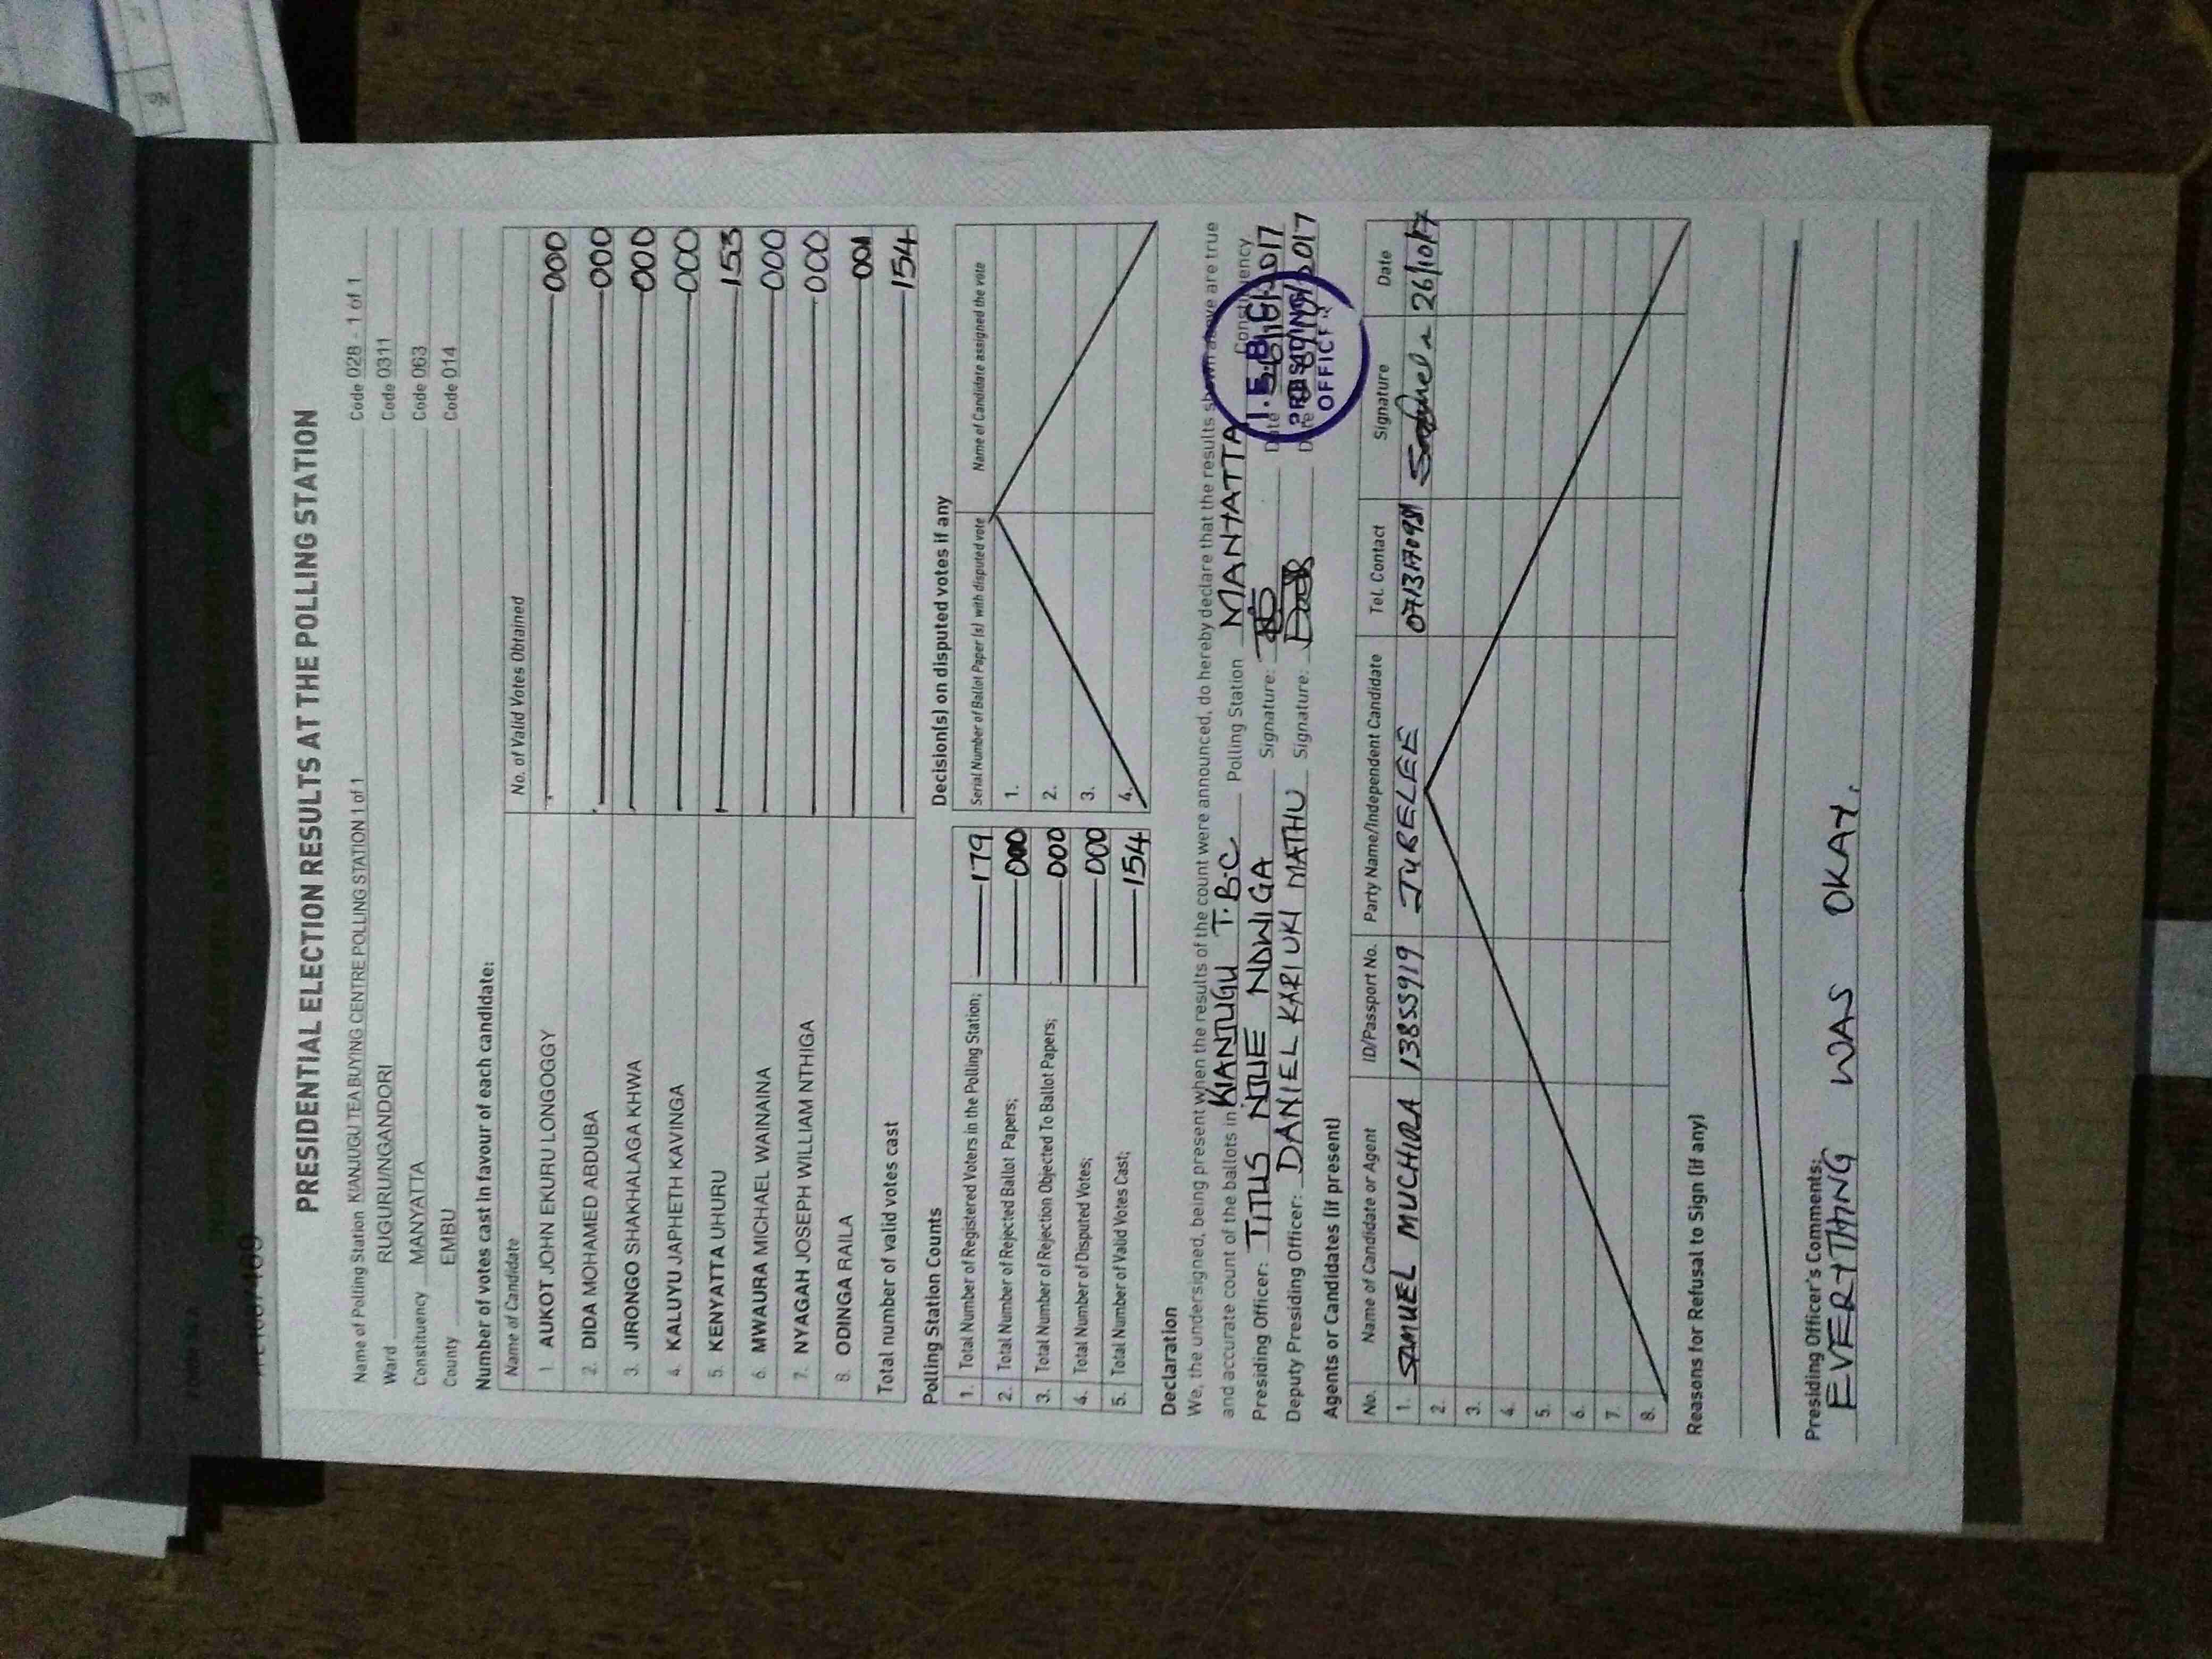 PRESIDENTIAL ELECTION RESULTS AT THE POLLING STATION
Name of Polling Station KIANJUGU TEA BUYING CENTRE POLLING STATION 1 of 1 Code 028 - 1 of 1
Ward RUGURU/NGANDORI Code 0311
Constituency MANYATTA Code 063
County EMBU Code 014
Number of votes cast in favour of each candidate:
Name of Candidate No. of Valid Votes Obtained
1. AUKOT JOHN EKURU LONGOGGY 000
2. DIDA MOHAMED ABDUBA 000
3. JIRONGO SHAKHALAGA KHWA 000
4. KALUYU JAPHETH KAVINGA 000
5. KENYATTA UHURU 153
6. MWAURA MICHAEL WAINAINA 000
7. NYAGAH JOSEPH WILLIAM NTHIGA 000
8. ODINGA RAILA 001
Total number of valid votes cast 154
Polling Station Counts
1. Total Number of Registered Voters in the Polling Station; 179
2. Total Number of Rejected Ballot Papers; 000
3. Total Number of Rejection Objected To Ballot Papers; 000
4. Total Number of Disputed Votes; 000
5. Total Number of Valid Votes Cast; 154
Decision(s) on disputed votes if any
Serial Number of Ballot Paper (s) with disputed vote Name of Candidate assigned the vote
1.
2.
3.
4.
Declaration
We, the undersigned, being present when the results of the count were announced, do hereby declare that the results shown above are true
and accurate count of the ballots in KIANJUGU T.B.C Polling Station MANYATTA Constituency
Presiding Officer: TITUS NJUE NDWIGA Signature: Date 2017
Deputy Presiding Officer: DANIEL KARIUKI MATHU Signature: Date 2017
I.E.B.C
PRESIDING
OFFICER
Agents or Candidates (if present)
No. Name of Candidate or Agent ID/Passport No. Party Name/Independent Candidate Tel. Contact Signature Date
1. SAMUEL MUCHIRA 13855919 JUBELEE 26/10/17
2.
3.
4.
5.
6.
7.
8.
Reasons for Refusal to Sign (if any)
Presiding Officer's Comments:
EVERYTHING WAS OKAY.